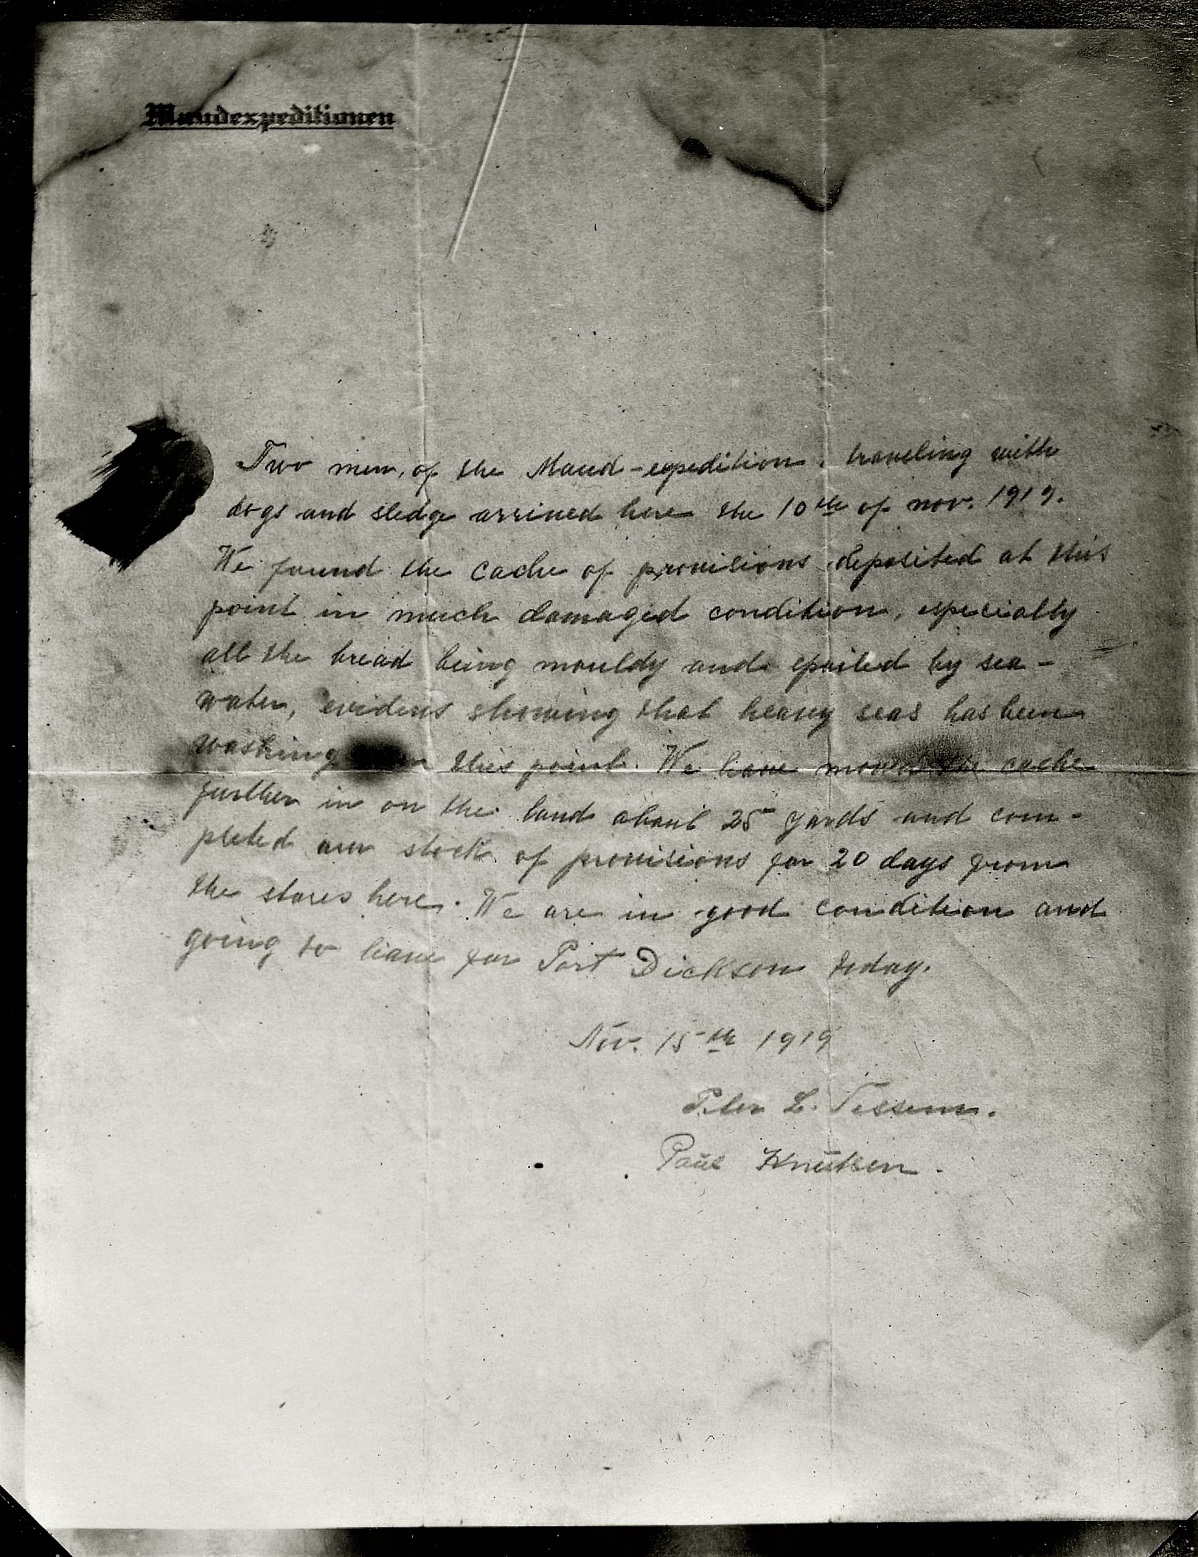 Maudexpeditionen
Two men, of the Maud-expedition, traveling with
dogs and sledge arrived here the 10th of nov. 1919.
We found the cache of provisions deposited at this
point in much damaged condition, especially
all the bread being mouldy and spoiled by sea-
water, evidens showing that heavy seas has been
washing this point. We have moved the cache
further in on the land about 25 yards and com-
pleted our stock of provisions for 20 days from
the stores here. We are in good condition and
going to leave for Port Dickson today.
Nov. 15th 1919
Peter L. Tessem.
Paul Knutsen.